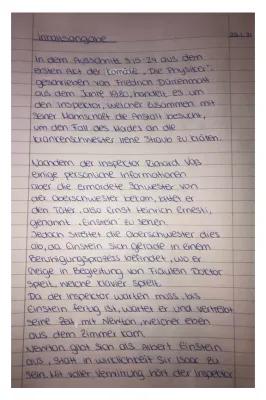 Inhaltsangabe
In dem Ausschnitt S.15-24 aus dem
ersten Akt der Komödie „Die Physiker",
geschrieben von Friedrich Dürrenmatt
aus dem Jahre 1980, handelt es um
den Inspektor, welcher zusammen mit
seiner Mannschaft die Anstalt besucht,
um den Fall des Mordes an die
Krankenschwester Irene Straub zu klären.
Nachdem der Inspektor Richard Voß
einige persönliche Informationen
über die ermordete Schwester von
der Oberschwester bekam, bittet er
den Täter, also Ernst Heinrich Ernesti,
genannt „Einstein" zu sehen.
Jedoch streitet die Oberschwester dies
ab, da Einstein sich gerade in einem
Beruhigungsprozess befindet, wo er
Geige in Begleitung von Fräulein Doktor
spielt, welche Klavier spielt.
Da der Inspektor warten muss, bis
Einstein fertig ist, wartet er und vertreibt
seine Zeit mit Newton, welcher eben
aus dem Zimmer kam.
Newton gibt sich als Albert Einstein
aus, statt in wirklichkeit Sir Isaac zu
sein. Mit voller Verwirrung hört der Inspektor